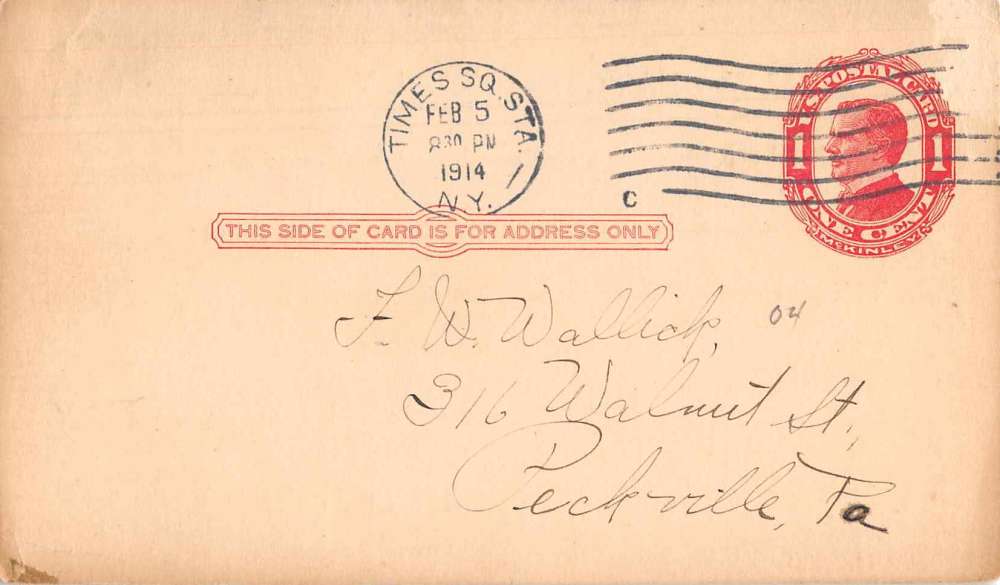 TIMES SQ. STA.
FEB 5
830 PM
1914
N.Y.
C
U.S. POSTAL CARD
1 1
ONE CENT
McKINLEY
THIS SIDE OF CARD IS FOR ADDRESS ONLY
F. W. Wallick,
04
316 Walnut St.,
Peckville, Pa